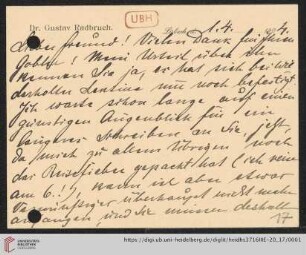 UBH
Dr. Gustav Radbruch. 1. 4.
Lieber Freund! Vielen Dank für Ihren
Goethe! Mein Urteil über Ihn
kennen Sie ja, es hat sich bei wie-
derholter Lektüre nur noch befestigt.
Ich warte schon lange auf einen
günstigen Augenblick für ein
längeres Schreiben an Sie, jetzt,
da mich zu allem Übrigen noch
das Reisefieber gepackt hat (ich reise
am 6.!), kann ich aber etwas
Vernünftiges überhaupt nicht mehr
anfangen, und Sie müssen deshalb
17
https://digi.ub.uni-heidelberg.de/diglit/heidhs3716IIIE-20_17/0001
UNIVERSITÄTSBIBLIOTHEK HEIDELBERG